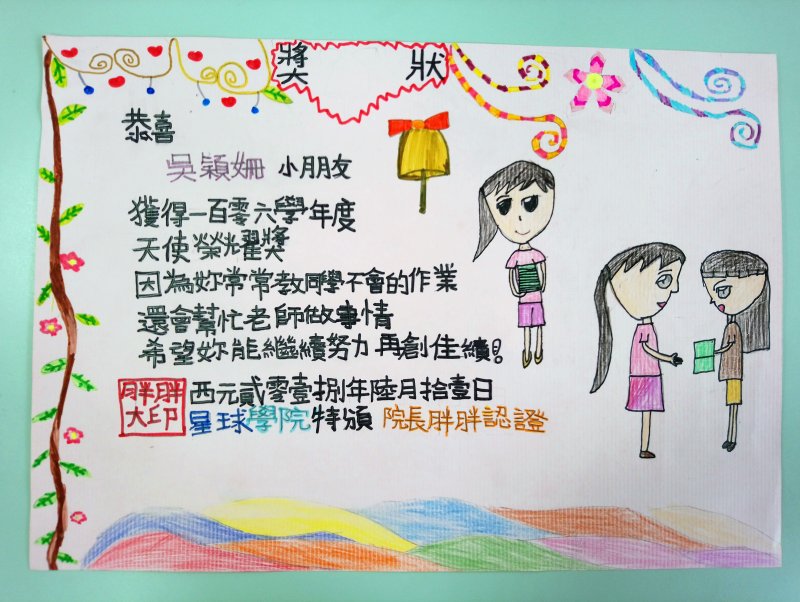 獎狀
恭喜
吳穎姍 小朋友
獲得一百零六學年度
天使榮耀獎
因為妳常常教同學不會的作業
還會幫忙老師做事情
希望妳能繼續努力 再創佳績!
胖胖
大印
西元貳零壹捌年陸月拾壹日
星球學院特頒 院長胖胖認證